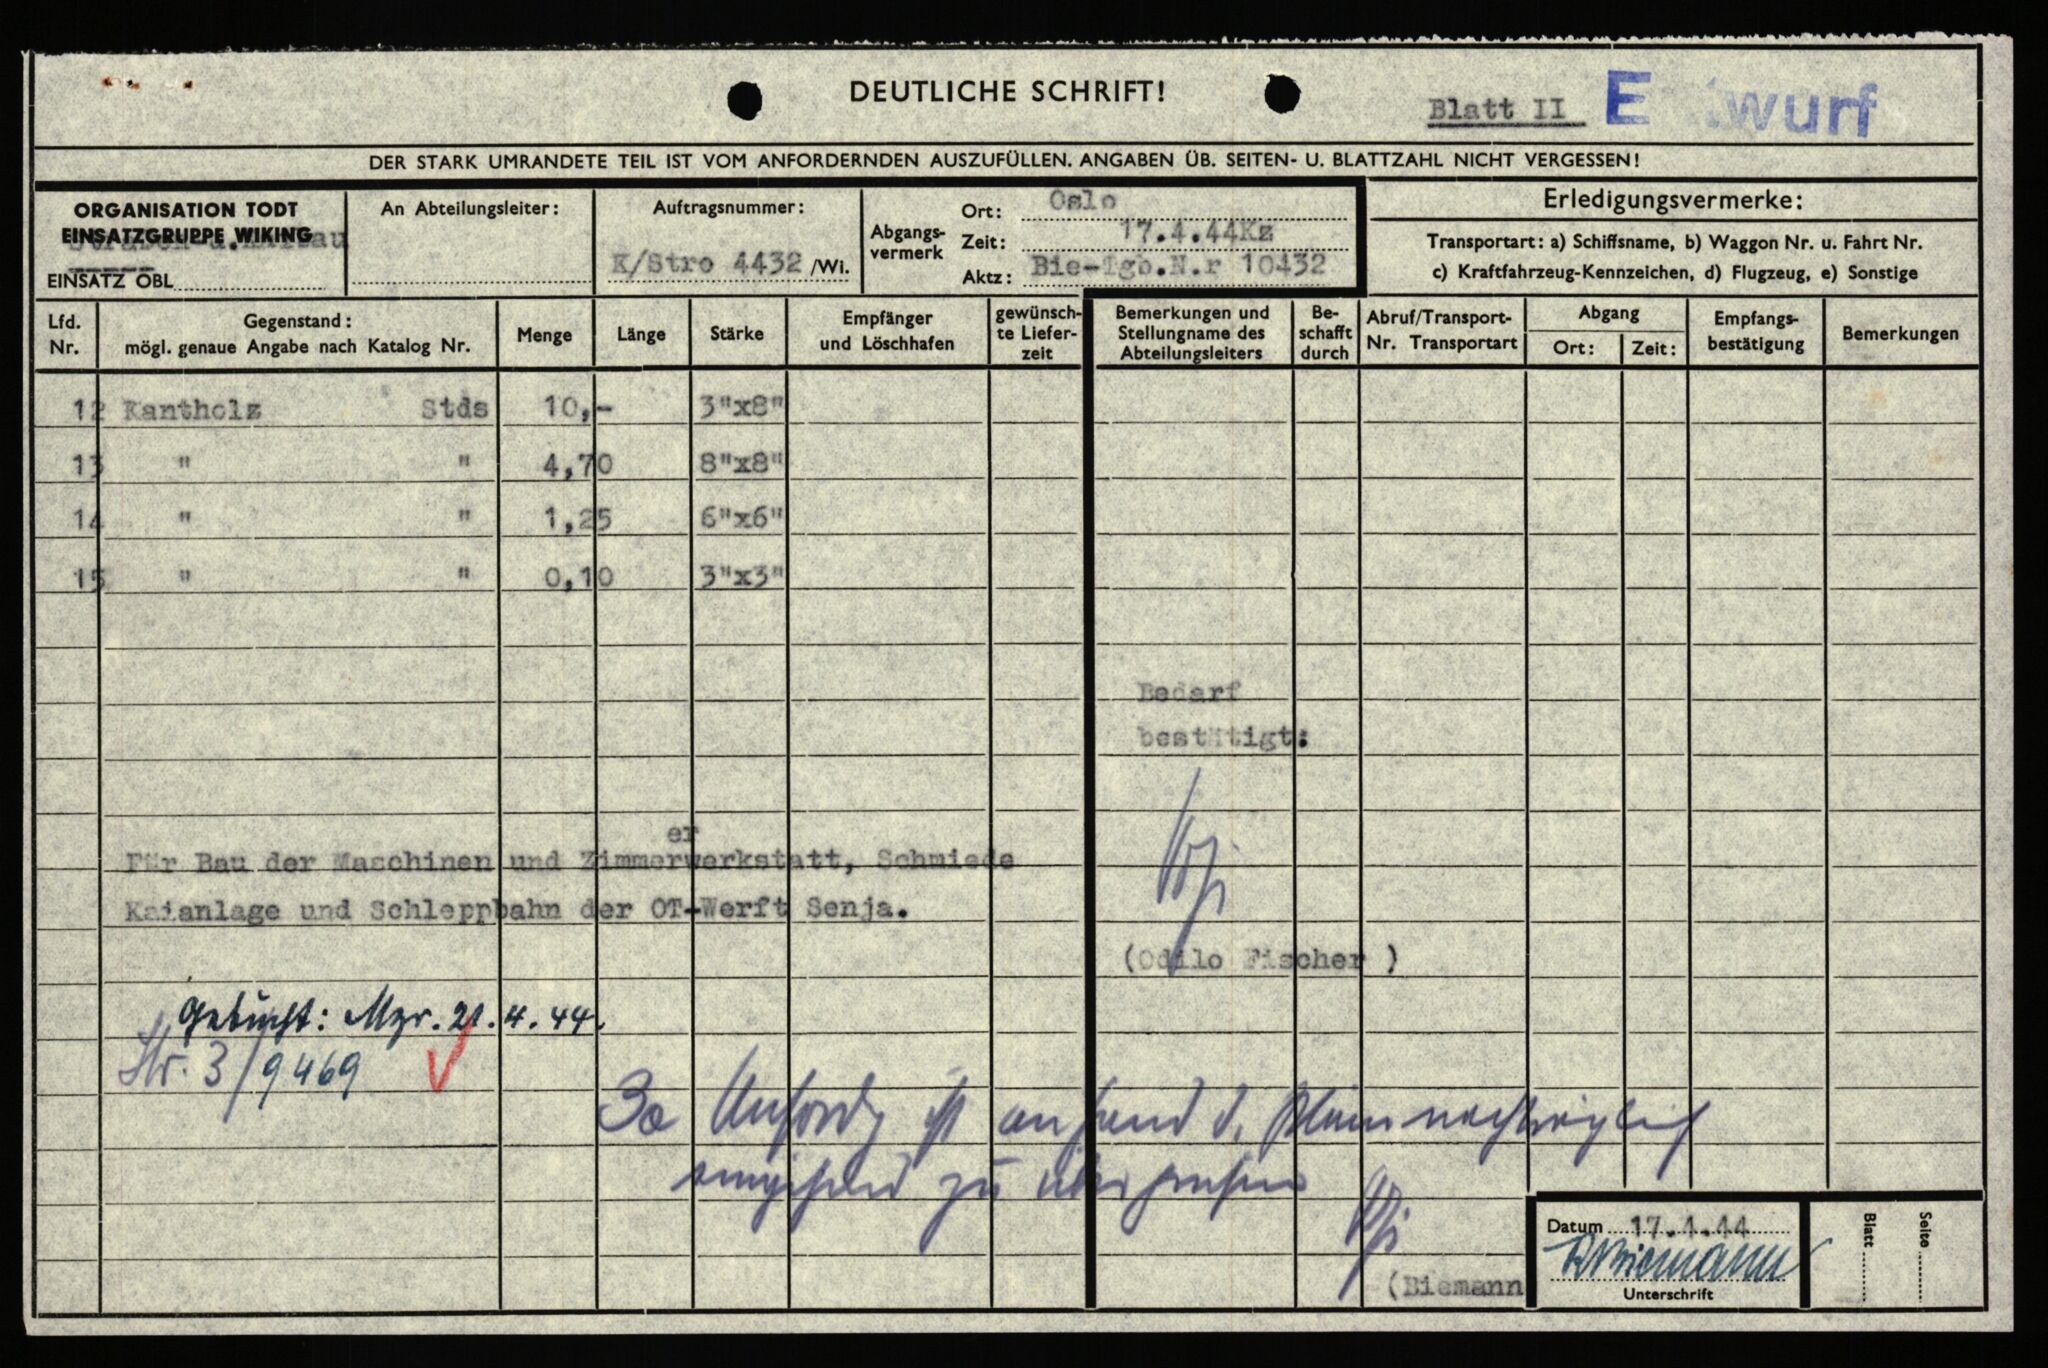 DEUTLICHE SCHRIFT!
Blatt II Entwurf
DER STARK UMRANDETE TEIL IST VOM ANFORDERNDEN AUSZUFÜLLEN. ANGABEN ÜB. SEITEN- U. BLATTZAHL NICHT VERGESSEN!
ORGANISATION TODT
EINSATZGRUPPE WIKING
EINSATZ OBL
An Abteilungsleiter:
Auftragsnummer:
K/Stro 4432 /Wi.
Abgangs-
vermerk
Ort: Oslo
Zeit: 17.4.44Kz
Aktz: Bie-Tgb.N.r 10432
Erledigungsvermerke:
Transportart: a) Schiffsname, b) Waggon Nr. u. Fahrt Nr.
c) Kraftfahrzeug-Kennzeichen, d) Flugzeug, e) Sonstige
Lfd.
Nr.
Gegenstand:
mögl. genaue Angabe nach Katalog Nr.
Menge
Länge
Stärke
Empfänger
und Löschhafen
gewünsch-
te Liefer-
zeit
Bemerkungen und
Stellungname des
Abteilungsleiters
Be-
schafft
durch
Abruf/Transport-
Nr. Transportart
Abgang
Ort: Zeit:
Empfangs-
bestätigung
Bemerkungen
12 Kantholz Stds 10,- 3"x8"
13 " " 4,70 8"x8"
14 " " 1,25 6"x6"
15 " " 0,10 3"x3"
Bedarf
bestätigt:
er
Für Bau der Maschinen und Zimmerwerkstatt, Schmiede
Kaianlage und Schleppbahn der OT-Werft Senja.
(Odilo Fischer )
Gebucht: Mzr. 21.4.44.
Str. 3/9469
ist anhand d. nachträglich
eingehend zu überprüfen
(Biemann
Datum 17.4.44
Biemann
Unterschrift
Blatt
Seite